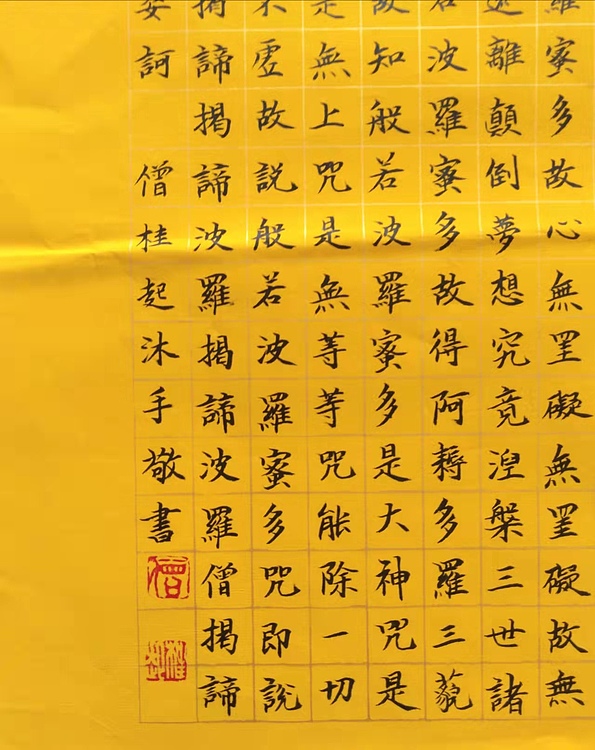 羅蜜多故心無罣礙無罣礙故無
遠離顛倒夢想究竟涅槃三世諸
若波羅蜜多故得阿耨多羅三藐
故知般若波羅蜜多是大神咒是
是無上咒是無等等咒能除一切
不虛故說般若波羅蜜多咒即說
揭諦揭諦波羅揭諦波羅僧揭諦
娑訶 僧桂起沐手敬書